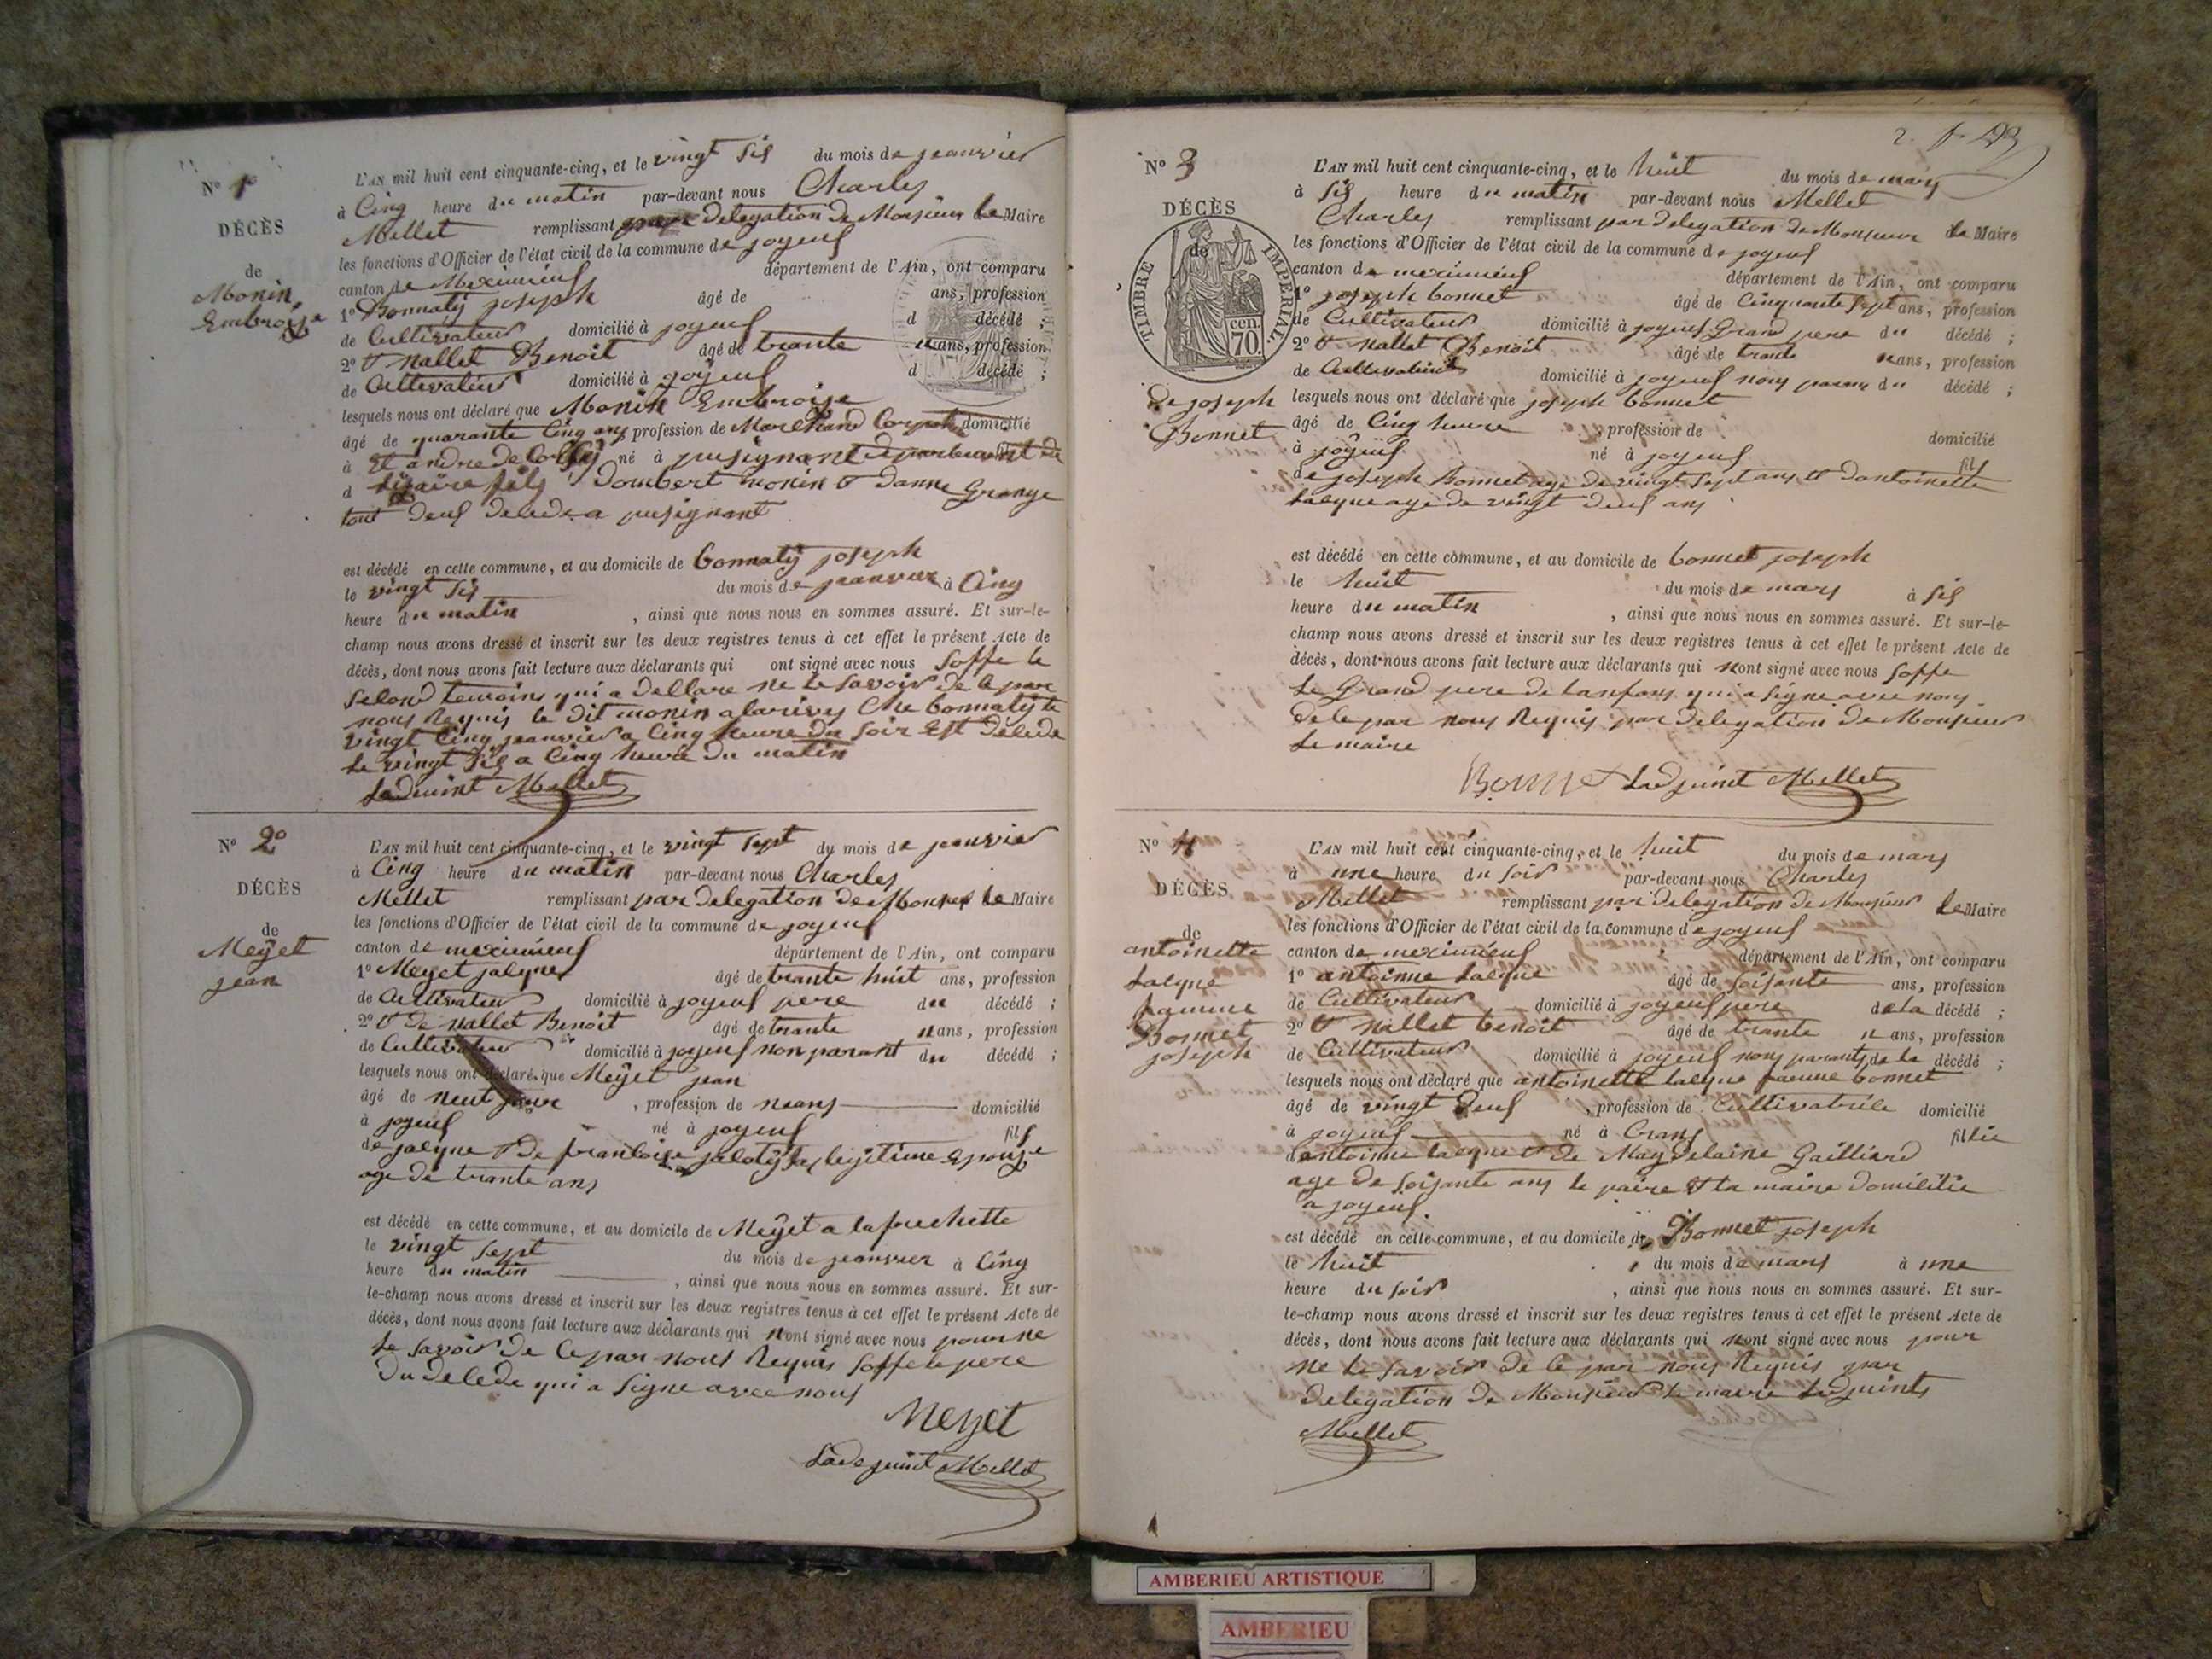 N° 1
DÉCÈS
de
Monin
Embroise
L'AN mil huit cent cinquante-cinq, et le vingt sis du mois de jeanvier
à Cinq heure du matin par-devant nous Charles
Mellet remplissant par delegation de Monsieur le Maire
les fonctions d'Officier de l'état civil de la commune de joyeus
canton de Meximieus département de l'Ain, ont comparu
1° Bonnatÿ joseph âgé de ans, profession
de Cultivateur domicilié à joyeus d décédé ;
2° & nallet Benoit âgé de trante n ans, profession
de Cultivateur domicilié à joyeus d décédé ;
lesquels nous ont déclaré que Monin Embroise
âgé de quarante Cinq ans profession de Marchand domicilié
à St andre de Corsÿ né à pusignant
d fils Dombert monin & Danne Grange
tout deus deledea pusignant
est décédé en cette commune, et au domicile de bonnatÿ joseph
le vingt sis du mois de jeanvier à Cinq
heure du matin , ainsi que nous nous en sommes assuré. Et sur-le-
champ nous avons dressé et inscrit sur les deux registres tenus à cet effet le présent Acte de
décès, dont nous avons fait lecture aux déclarants qui ont signé avec nous soffe le
selond temoins qui a dellare ne le savoir de le par
nous Requis le dit monin alarives Che bonnatÿ le
vingt Cinq jeanvier a Cinq heure du soir Est delede
le vingt sis a Cinq heure du matin
Ladjuint Mellet
N° 2°
DÉCÈS
de
Meÿet
jean
L'AN mil huit cent cinquante-cinq, et le vingt sept du mois de jeanvier
à Cinq heure du matin par-devant nous Charles
Mellet remplissant par delegation de Monsieur le Maire
les fonctions d'Officier de l'état civil de la commune de joyeus
canton de meximieus département de l'Ain, ont comparu
1° Meyet jalque âgé de trante huit ans, profession
de Cultivateur domicilié à joyeus pere du décédé ;
2° & de nallet Benoit âgé de trante n ans, profession
de Cultivateur domicilié à joyeus non parant du décédé ;
lesquels nous ont déclaré que Meÿet jean
âgé de neuf , profession de neans domicilié
à joyeus né à joyeus fils
de jalque & de franloise jalatÿ legitime Epouse
age de trante ans
est décédé en cette commune, et au domicile de Meÿet a lafouchette
le vingt sept du mois de jeanvier à Cinq
heure du matin , ainsi que nous nous en sommes assuré. Et sur-
le-champ nous avons dressé et inscrit sur les deux registres tenus à cet effet le présent Acte de
décès, dont nous avons fait lecture aux déclarants qui nont signé avec nous pour ne
le savoir de le par nous Requis soffe le pere
du delede qui a signe avec nous
Meyet
Ladjuint Mellet
2.
N° 3
DÉCÈS
de
TIMBRE IMPERIAL
70 cen.
De joseph
Bonnet
L'AN mil huit cent cinquante-cinq, et le huit du mois de mars
à sis heure du matin par-devant nous Mellet
Charles remplissant par delegation de Monsieur le Maire
les fonctions d'Officier de l'état civil de la commune de joyeus
canton de meximieus département de l'Ain, ont comparu
1° joseph bonnet âgé de Cinquante sept ans, profession
de Cultivateur domicilié à joyeus Grand pere du décédé ;
2° & nallet Benoit âgé de trante n ans, profession
de Cultivateur domicilié à joyeus nons parens du décédé ;
lesquels nous ont déclaré que joseph bonnet
âgé de Cinq heure , profession de domicilié
à joÿeus né à joyeus fils
de joseph Bonnet age de vingt sept ans & dantoinette
lalque age de vingt deus ans
est décédé en cette commune, et au domicile de bonnet joseph
le huit du mois de mars à sis
heure du matin , ainsi que nous nous en sommes assuré. Et sur-le-
champ nous avons dressé et inscrit sur les deux registres tenus à cet effet le présent Acte de
décès, dont nous avons fait lecture aux déclarants qui nont signé avec nous soffe
le Grand pere de lanfans qui a signe avec nous
de le par nous Requis par delegation de Monsieur
le maire
Bonnet Ladjuint Mellet
N° 4
DÉCÈS
de
antoinette
lalque
famme
Bonnet
joseph
L'AN mil huit cent cinquante-cinq, et le huit du mois de mars
à une heure du soir par-devant nous Charles
Mellet remplissant par delegation de Monsieur le Maire
les fonctions d'Officier de l'état civil de la commune de joyeus
canton de meximieus département de l'Ain, ont comparu
1° antoinne lalque âgé de soisante ans, profession
de Cultivateur domicilié à joyeus pere de la décédé ;
2° & nallet benoit âgé de trante n ans, profession
de Cultivateur domicilié à joyeus nons parants de la décédé ;
lesquels nous ont déclaré que antoinette lalque famme bonnet
âgé de vingt deus , profession de Cultivatrile domicilié
à joyeus né à Crans fillie
dantoinne lalque & de Magdelaine Gailliard
age de soisante ans le paire & la maire domililie
a joyeus.
est décédé en cette commune, et au domicile de Bonnet joseph
le huit du mois de mars à une
heure du soir , ainsi que nous nous en sommes assuré. Et sur-
le-champ nous avons dressé et inscrit sur les deux registres tenus à cet effet le présent Acte de
décès, dont nous avons fait lecture aux déclarants qui nont signé avec nous pour
ne le savoir de le par nous Requis par
delegation de Monsieur le maire Ladjuints
Mellet
AMBERIEU ARTISTIQUE
AMBERIEU